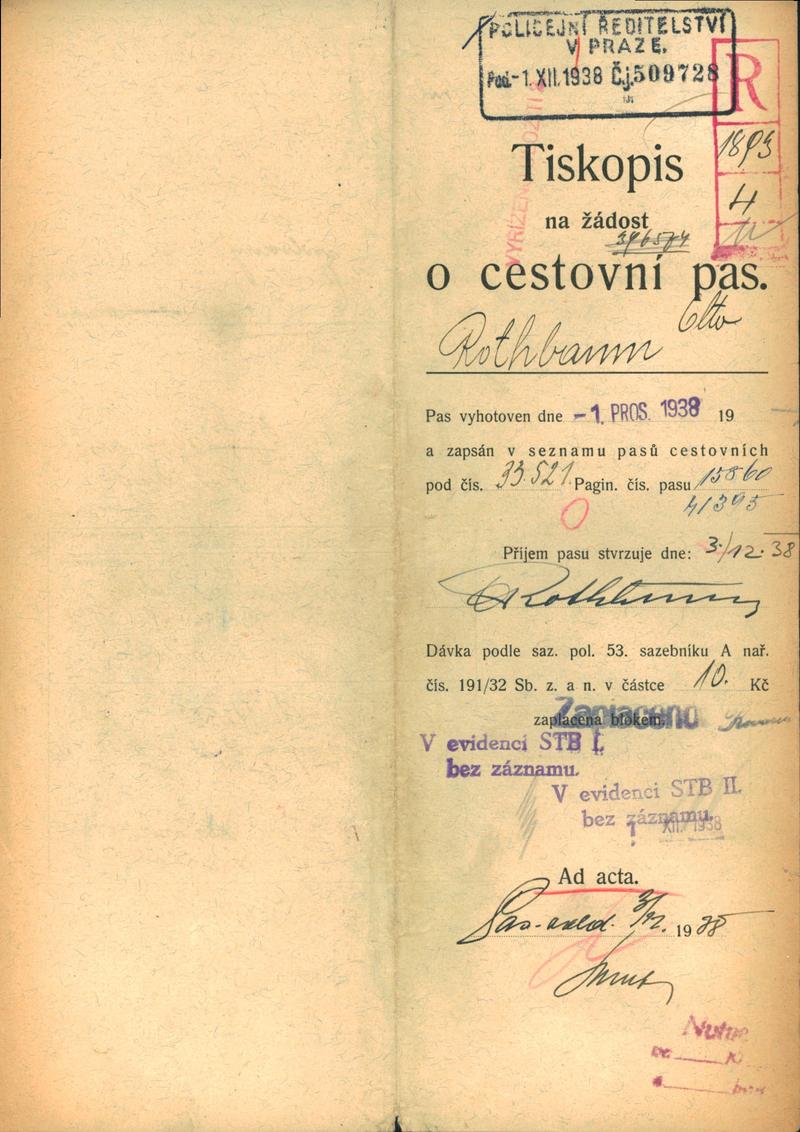 POLICEJNÍ ŘEDITELSTVÍ
V PRAZE.
Pod. -1. XII. 1938 Čj. 509728
R
1893
4
Tiskopis
na žádost
o cestovní pas.
Rothbaum Otto
Pas vyhotoven dne -1. PROS. 1938 19
a zapsán v seznamu pasů cestovních
pod čís. 33.521. Pagin. čís. pasu 15860
41395
Příjem pasu stvrzuje dne: 3./12. 38
Rothbaum
Dávka podle saz. pol. 53. sazebníku A nař.
čís. 191/32 Sb. z. a n. v částce 10. Kč
zaplacena blokem.
Zaplaceno
V evidenci STB I.
bez záznamu.
V evidenci STB II.
bez záznamu.
1 XII. 1938
Ad acta.
3/12. 1938